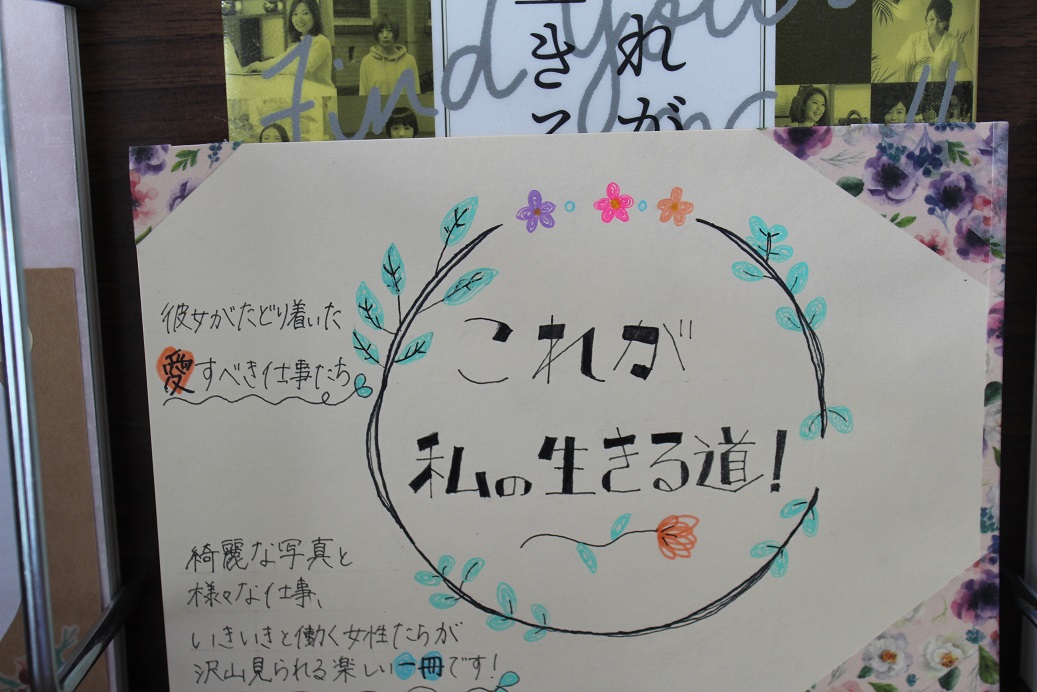 Find Your
れが
きる
これが
私の生きる道!
彼女がたどり着いた
愛すべき仕事たち
綺麗な写真と
様々な仕事、
いきいきと働く女性たちが
沢山見られる楽しい一冊です!